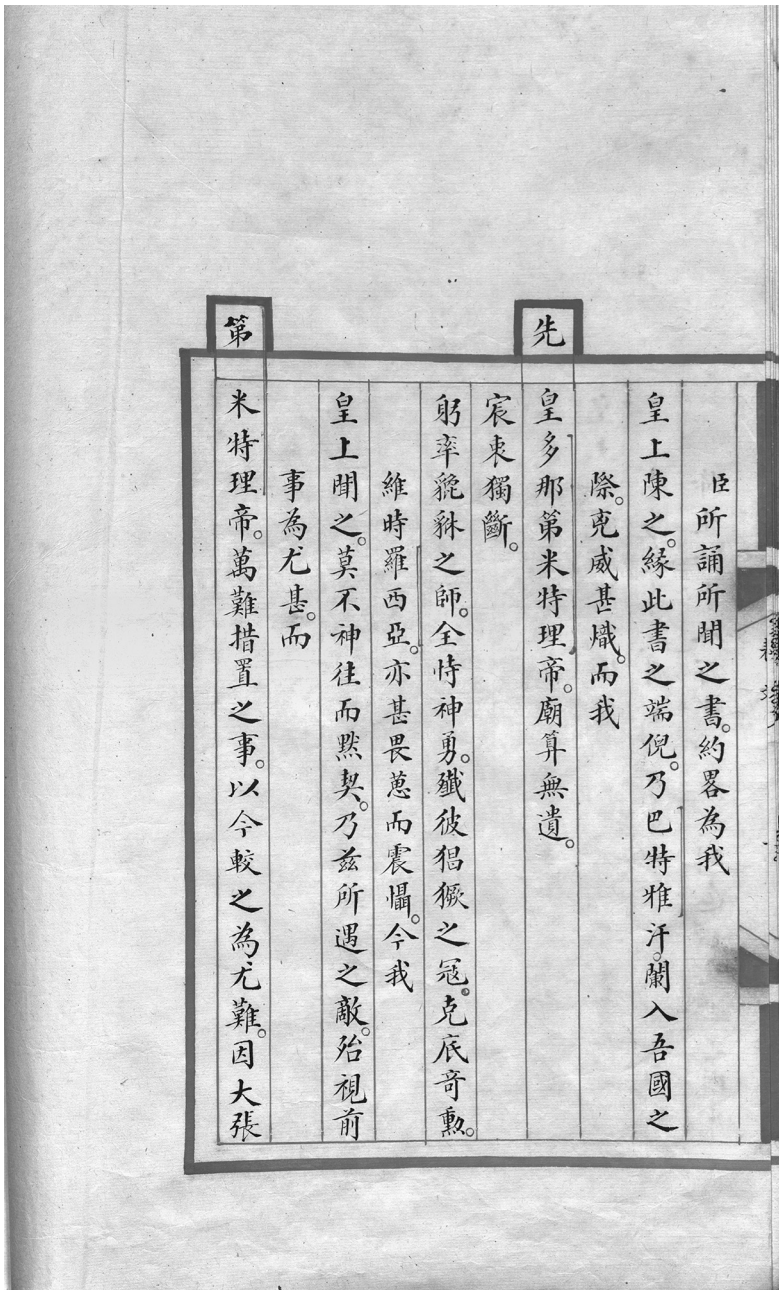 臣所誦所聞之書。約畧為我
皇上陳之。緣此書之端倪。乃巴特雅汗。闌入吾國之
際。兇威甚熾。而我
先皇多那第米特理帝。廟算無遺。
宸衷獨斷。
躬率貔貅之師。全恃神勇。殲彼猖獗之寇。克底奇勳。
維時羅西亞。亦甚畏葸而震懾。今我
皇上聞之。莫不神往而默契。乃茲所遇之敵。殆視前
事為尤甚。而
第米特理帝。萬難措置之事。以今較之為尤難。因大張